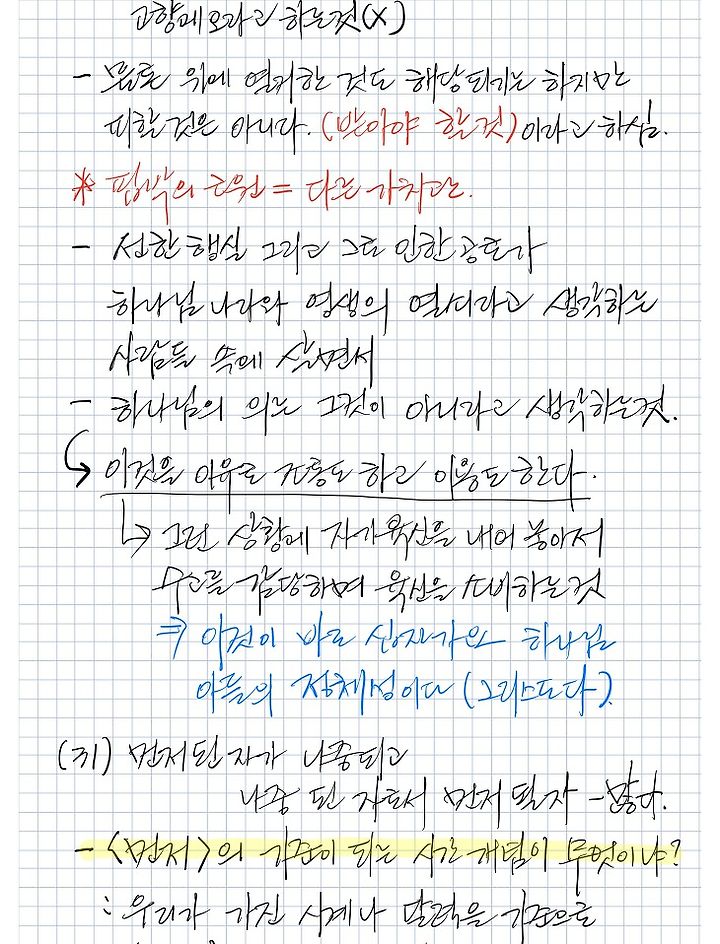 고향에 오라고 하는것(X)
- 물론 위에 열거한 것도 해당되기는 하지만
피할것은 아니다. (받아야 할것)이라고 하심.
* 핍박의 근원 = 다른 가치관.
- 선한 행실 그리고 그로 인한 공로가
하나님 나라와 영생의 열쇠라고 생각하는
사람들 속에 살면서
- 하나님의 의는 그것이 아니라고 생각하는것.
↳ 이것을 이유로 조롱도 하고 이용도 한다.
↳ 그런 상황에 자기 육신을 내어 놓아서
수고를 감당하며 육신을 소비하는것
⇒ 이것이 바로 십자가요 하나님
아들의 정체성이다 (그리스도다).
(31) 먼저된 자가 나중되고
나중 된 자로서 먼저 될 자 - 많다.
- <먼저>의 기준이 되는 시간 개념이 무엇이냐?
: 우리가 가진 시계나 달력을 기준으로